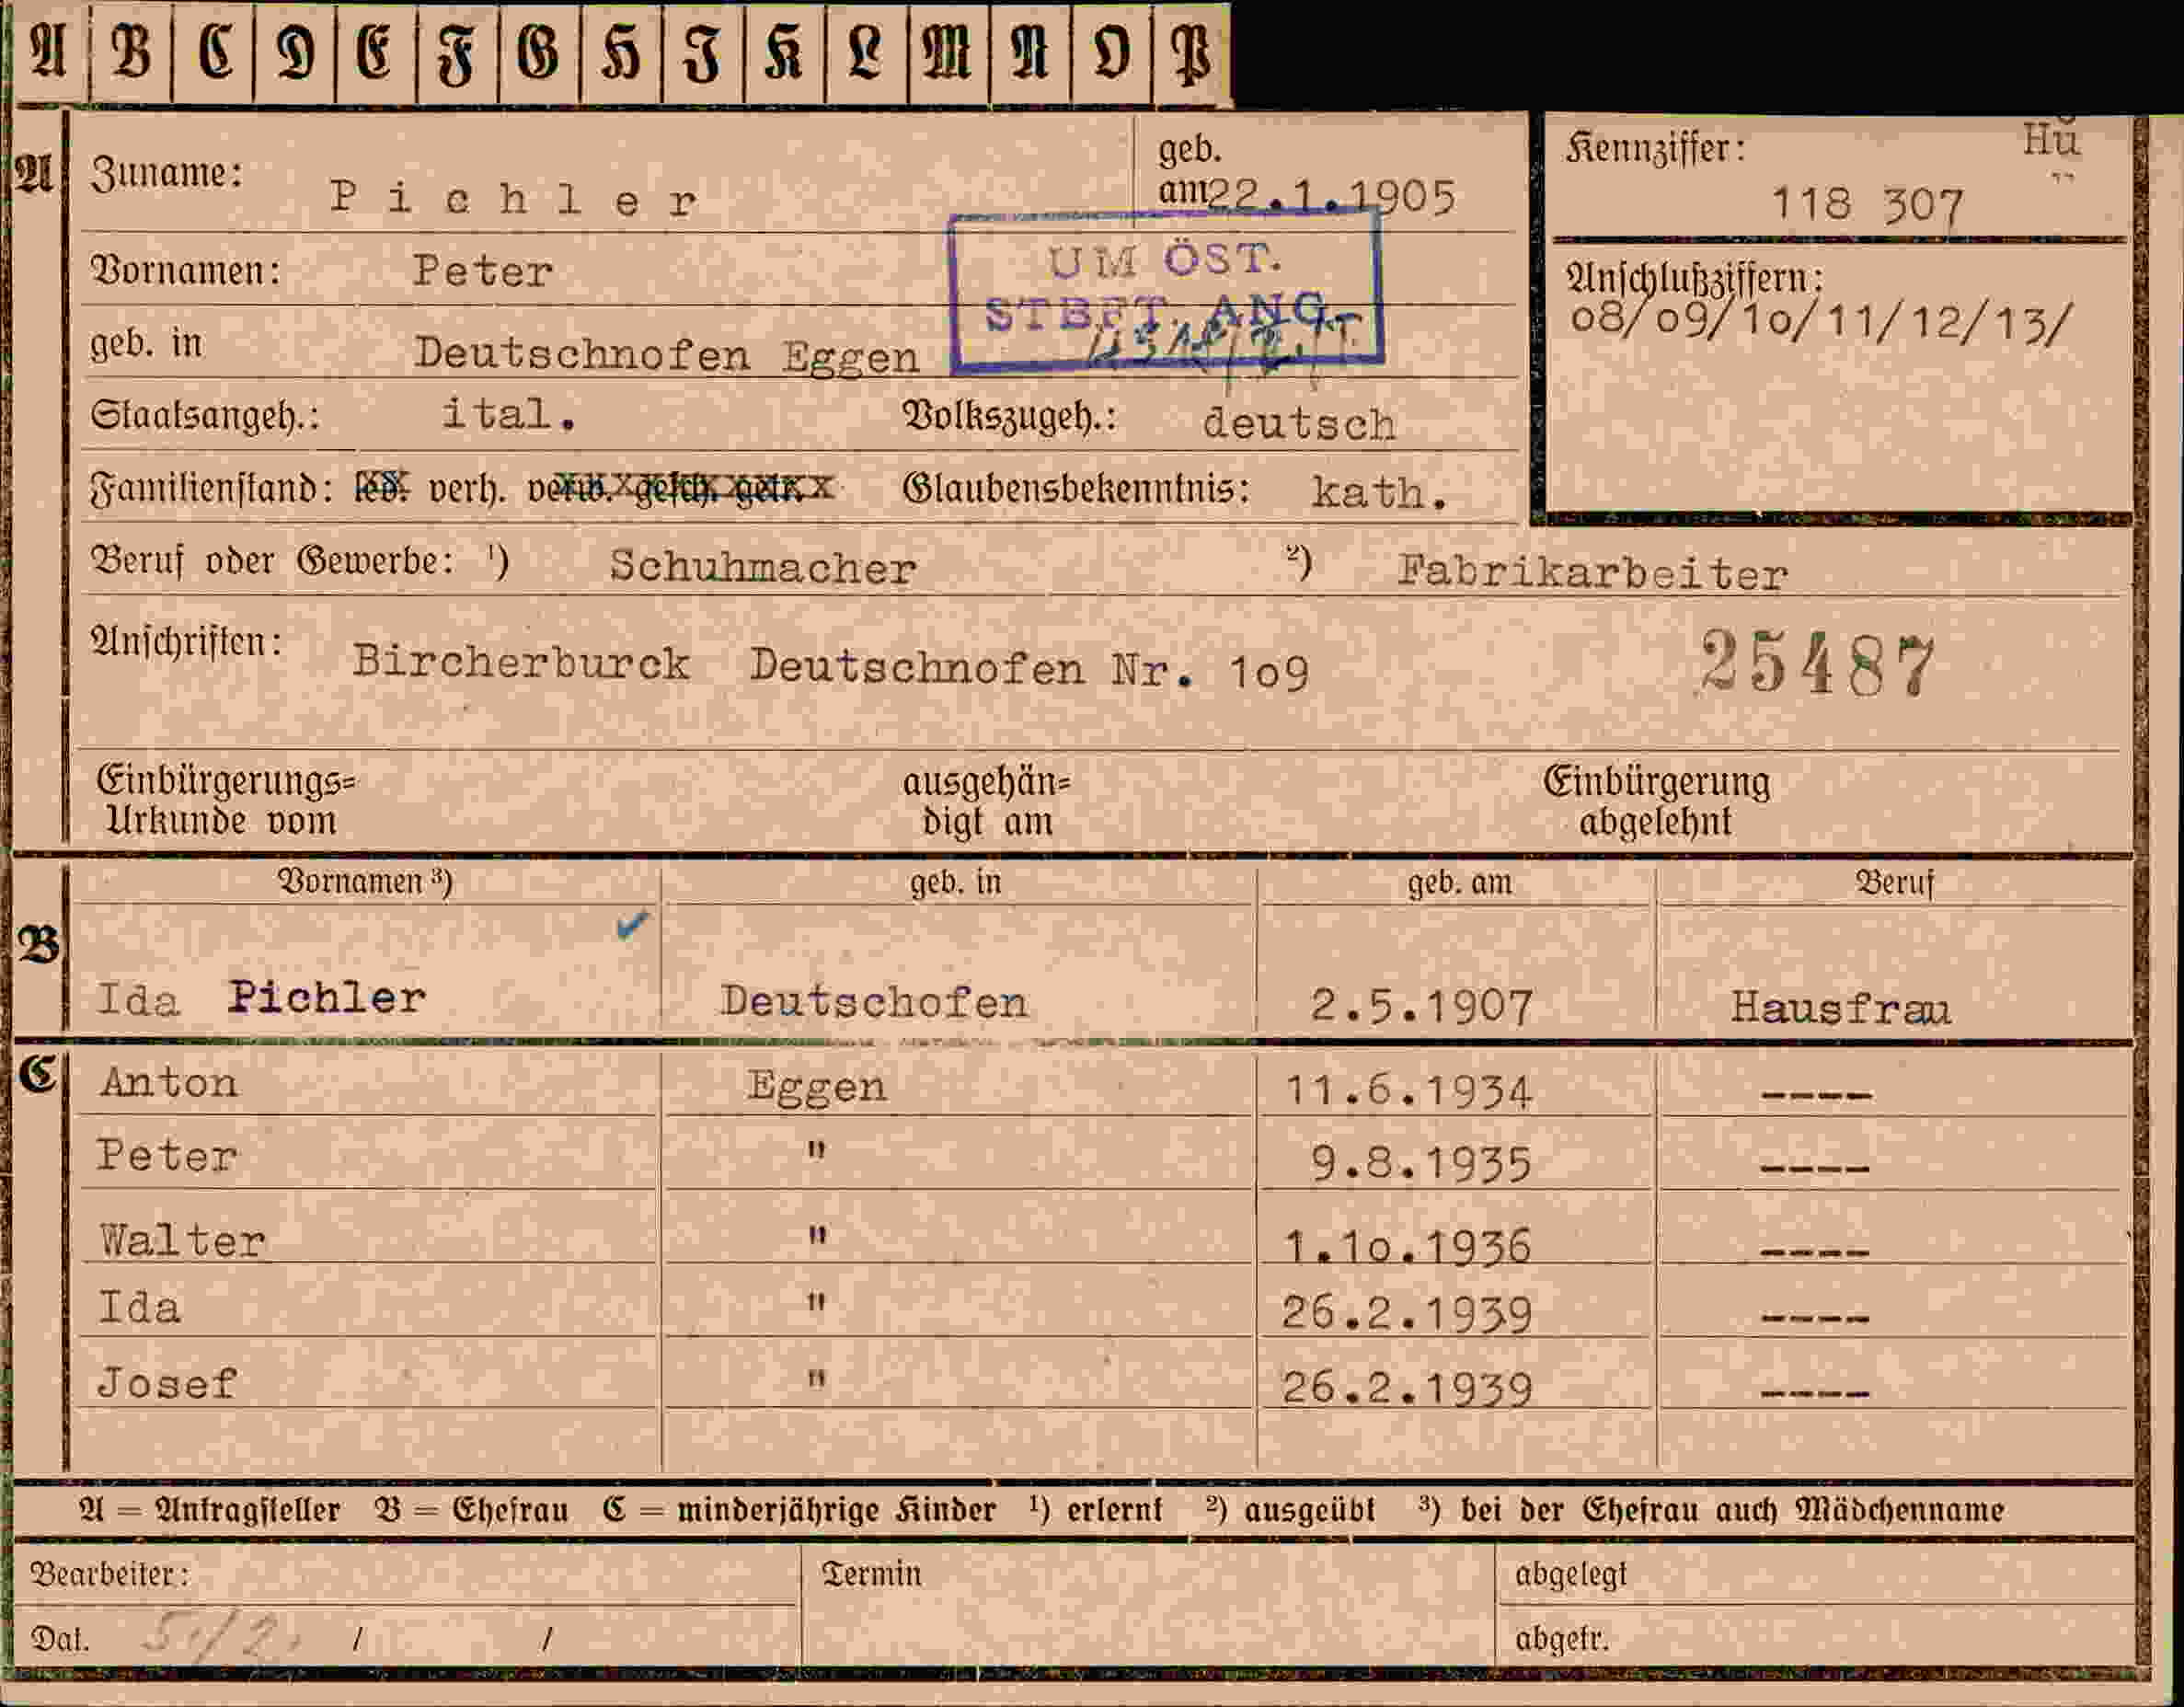 A B C D E F G H J K L M N O P
A Zuname: Pichler geb. am 22.1.1905
Kennziffer: Hü
118 307
UM ÖST.
STBFT. ANG.
Vornamen: Peter
Anschlußziffern:
08/09/10/11/12/13/
geb. in Deutschnofen Eggen
Staatsangeh.: ital. Volkszugeh.: deutsch
Familienstand: led. verh. verw. gesch. getr. Glaubensbekenntnis: kath.
Beruf oder Gewerbe: ¹) Schuhmacher ²) Fabrikarbeiter
Anschriften: Bircherburck Deutschnofen Nr. 109 25487
Einbürgerungs= ausgehän= Einbürgerung
Urkunde vom digt am abgelehnt
Vornamen ³) geb. in geb. am Beruf
B Ida Pichler Deutschofen 2.5.1907 Hausfrau
C Anton Eggen 11.6.1934 ----
Peter " 9.8.1935 ----
Walter " 1.10.1936 ----
Ida " 26.2.1939 ----
Josef " 26.2.1939 ----
A = Antragsteller B = Ehefrau C = minderjährige Kinder ¹) erlernt ²) ausgeübt ³) bei der Ehefrau auch Mädchenname
Bearbeiter: Termin abgelegt
Dat. 5./2. / / abgetr.